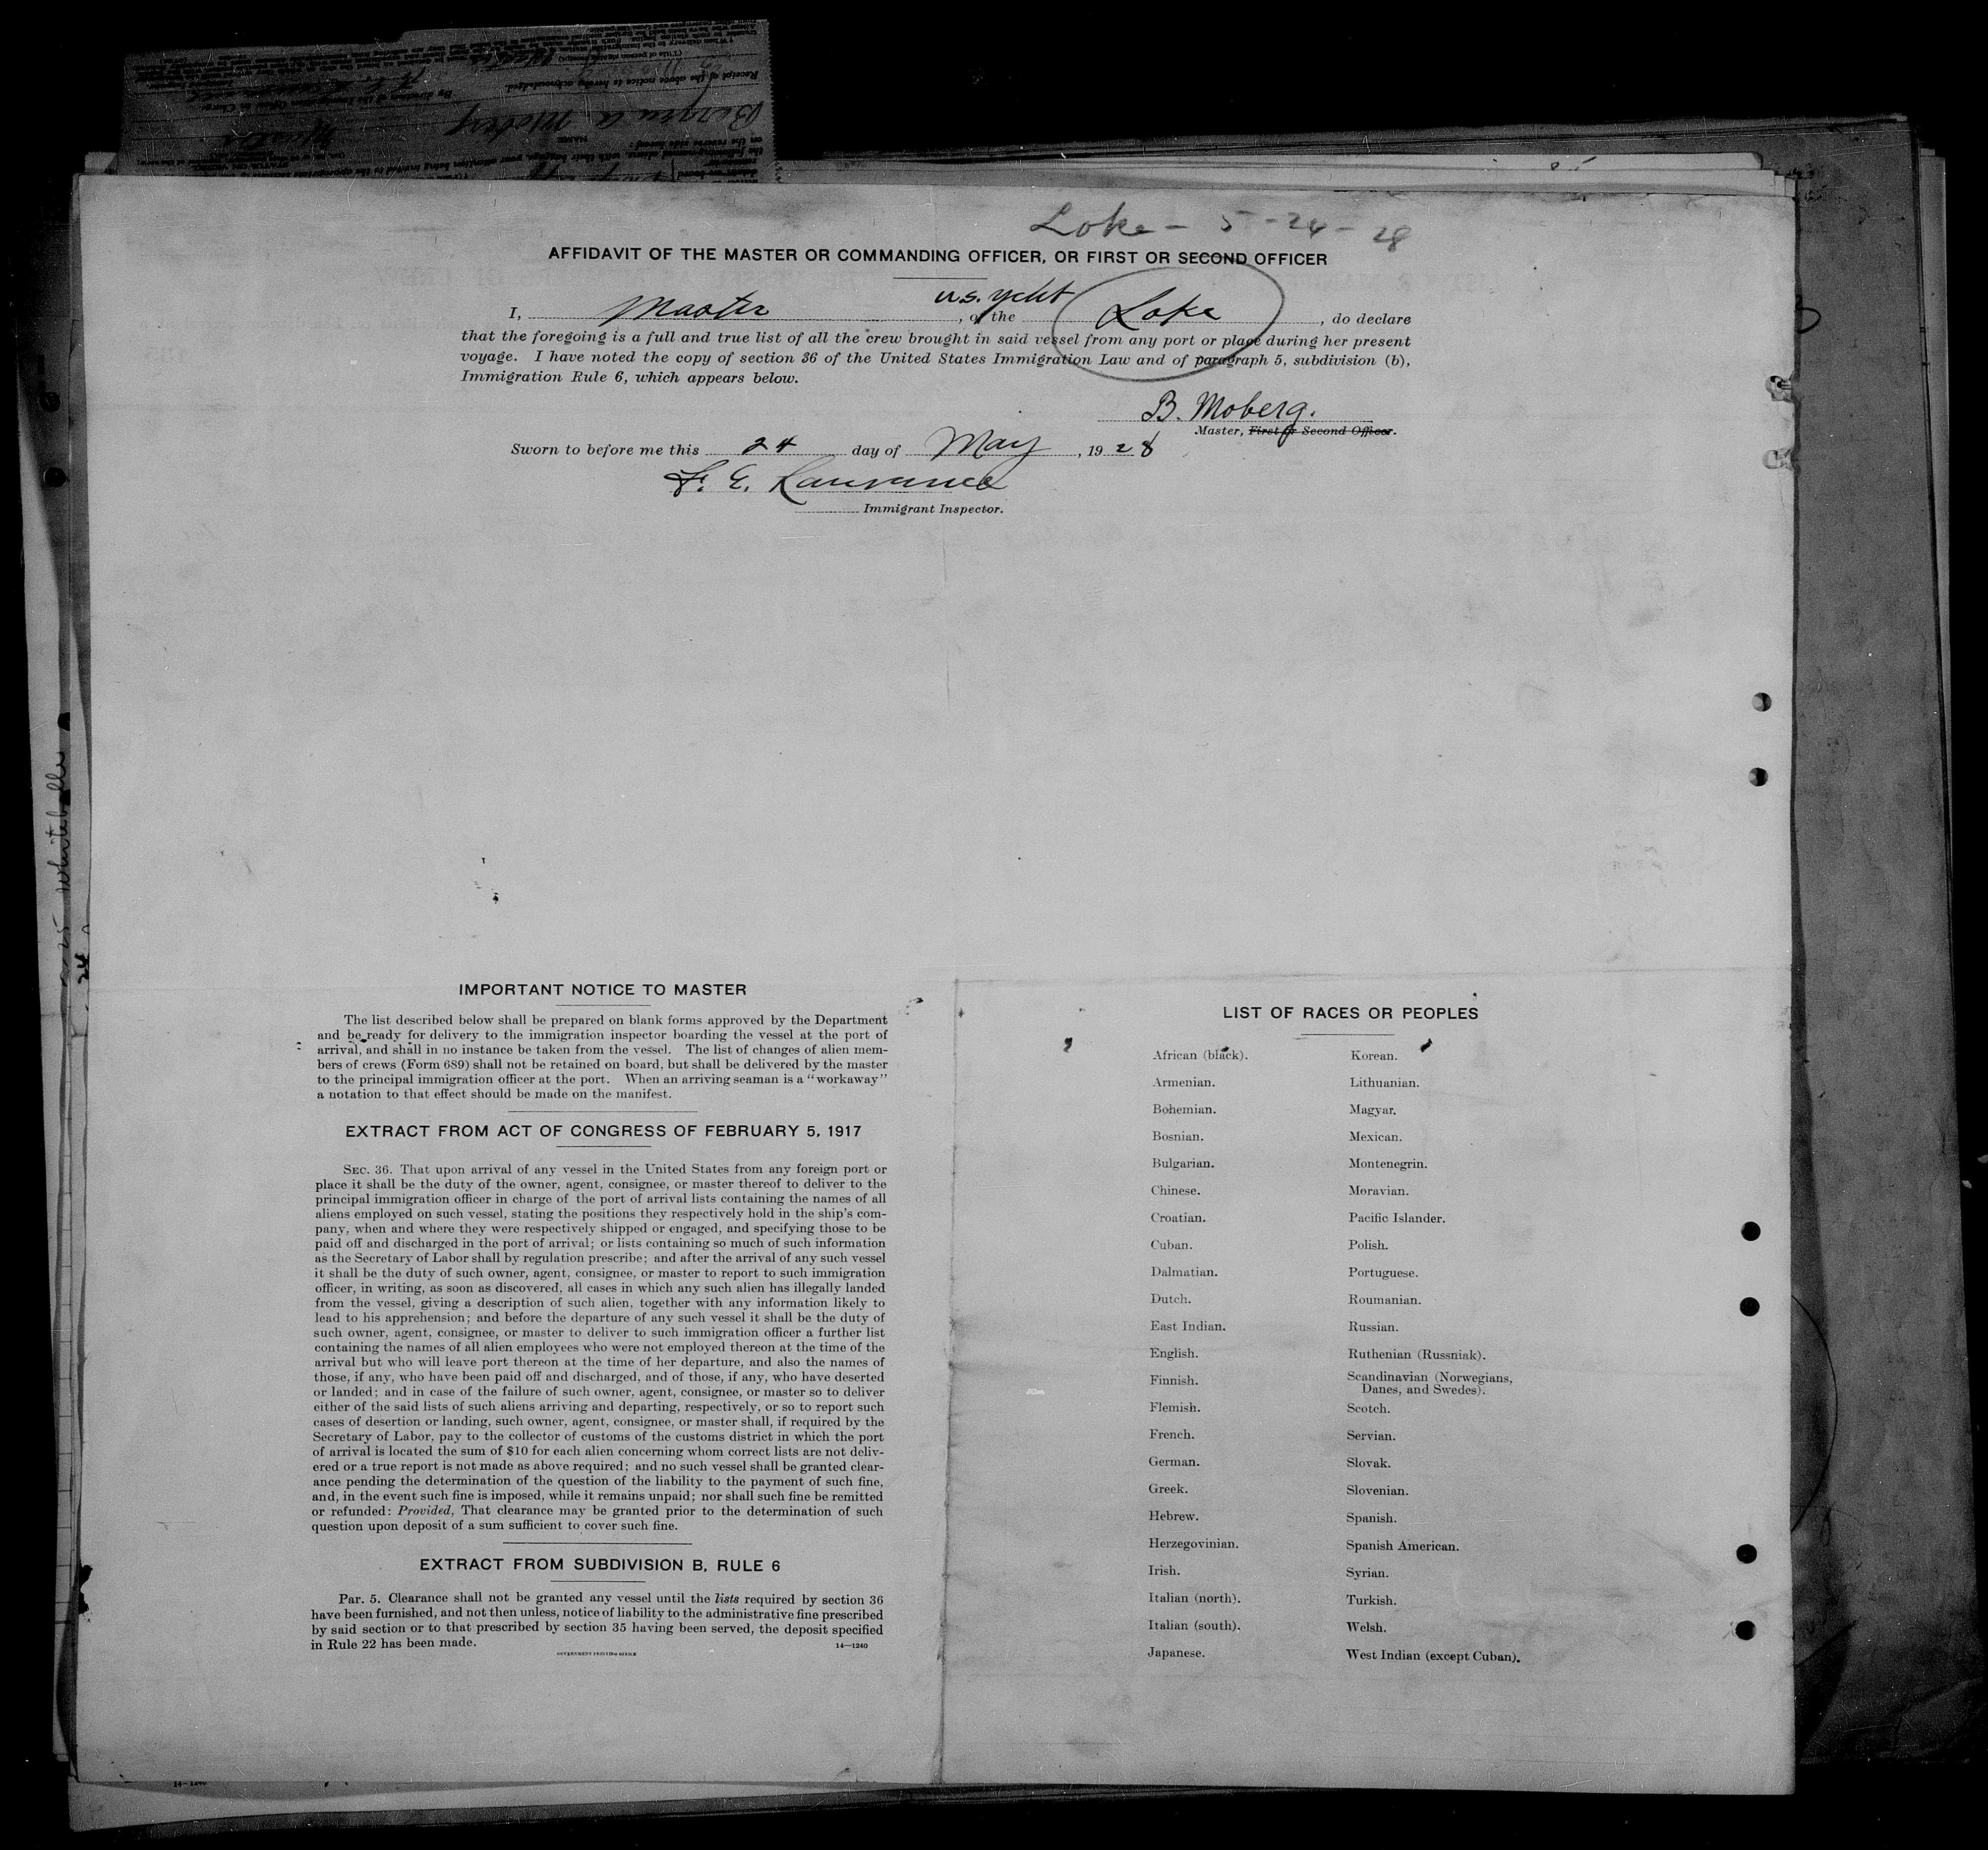 Loke - 5-24-28
AFFIDAVIT OF THE MASTER OR COMMANDING OFFICER, OR FIRST OR SECOND OFFICER
I, Master, of the u.s. ycht Loke, do declare
that the foregoing is a full and true list of all the crew brought in said vessel from any port or place during her present
voyage. I have noted the copy of section 36 of the United States Immigration Law and of paragraph 5, subdivision (b),
Immigration Rule 6, which appears below.
B. Moberg.
Master, First or Second Officer.
Sworn to before me this 24 day of May, 1928
F. E. Lawrence
Immigrant Inspector.
IMPORTANT NOTICE TO MASTER
The list described below shall be prepared on blank forms approved by the Department
and be ready for delivery to the immigration inspector boarding the vessel at the port of
arrival, and shall in no instance be taken from the vessel. The list of changes of alien mem-
bers of crews (Form 689) shall not be retained on board, but shall be delivered by the master
to the principal immigration officer at the port. When an arriving seaman is a "workaway"
a notation to that effect should be made on the manifest.
EXTRACT FROM ACT OF CONGRESS OF FEBRUARY 5, 1917
SEC. 36. That upon arrival of any vessel in the United States from any foreign port or
place it shall be the duty of the owner, agent, consignee, or master thereof to deliver to the
principal immigration officer in charge of the port of arrival lists containing the names of all
aliens employed on such vessel, stating the positions they respectively hold in the ship's com-
pany, when and where they were respectively shipped or engaged, and specifying those to be
paid off and discharged in the port of arrival; or lists containing so much of such information
as the Secretary of Labor shall by regulation prescribe; and after the arrival of any such vessel
it shall be the duty of such owner, agent, consignee, or master to report to such immigration
officer, in writing, as soon as discovered, all cases in which any such alien has illegally landed
from the vessel, giving a description of such alien, together with any information likely to
lead to his apprehension; and before the departure of any such vessel it shall be the duty of
such owner, agent, consignee, or master to deliver to such immigration officer a further list
containing the names of all alien employees who were not employed thereon at the time of the
arrival but who will leave port thereon at the time of her departure, and also the names of
those, if any, who have been paid off and discharged, and of those, if any, who have deserted
or landed; and in case of the failure of such owner, agent, consignee, or master so to deliver
either of the said lists of such aliens arriving and departing, respectively, or so to report such
cases of desertion or landing, such owner, agent, consignee, or master shall, if required by the
Secretary of Labor, pay to the collector of customs of the customs district in which the port
of arrival is located the sum of $10 for each alien concerning whom correct lists are not deliv-
ered or a true report is not made as above required; and no such vessel shall be granted clear-
ance pending the determination of the question of the liability to the payment of such fine,
and, in the event such fine is imposed, while it remains unpaid; nor shall such fine be remitted
or refunded: Provided, That clearance may be granted prior to the determination of such
question upon deposit of a sum sufficient to cover such fine.
EXTRACT FROM SUBDIVISION B, RULE 6
Par. 5. Clearance shall not be granted any vessel until the lists required by section 36
have been furnished, and not then unless, notice of liability to the administrative fine prescribed
by said section or to that prescribed by section 35 having been served, the deposit specified
in Rule 22 has been made.
14—1240
GOVERNMENT PRINTING OFFICE
LIST OF RACES OR PEOPLES
African (black).
Armenian.
Bohemian.
Bosnian.
Bulgarian.
Chinese.
Croatian.
Cuban.
Dalmatian.
Dutch.
East Indian.
English.
Finnish.
Flemish.
French.
German.
Greek.
Hebrew.
Herzegovinian.
Irish.
Italian (north).
Italian (south).
Japanese.
Korean.
Lithuanian.
Magyar.
Mexican.
Montenegrin.
Moravian.
Pacific Islander.
Polish.
Portuguese.
Roumanian.
Russian.
Ruthenian (Russniak).
Scandinavian (Norwegians,
Danes, and Swedes).
Scotch.
Servian.
Slovak.
Slovenian.
Spanish.
Spanish American.
Syrian.
Turkish.
Welsh.
West Indian (except Cuban).
14-1240